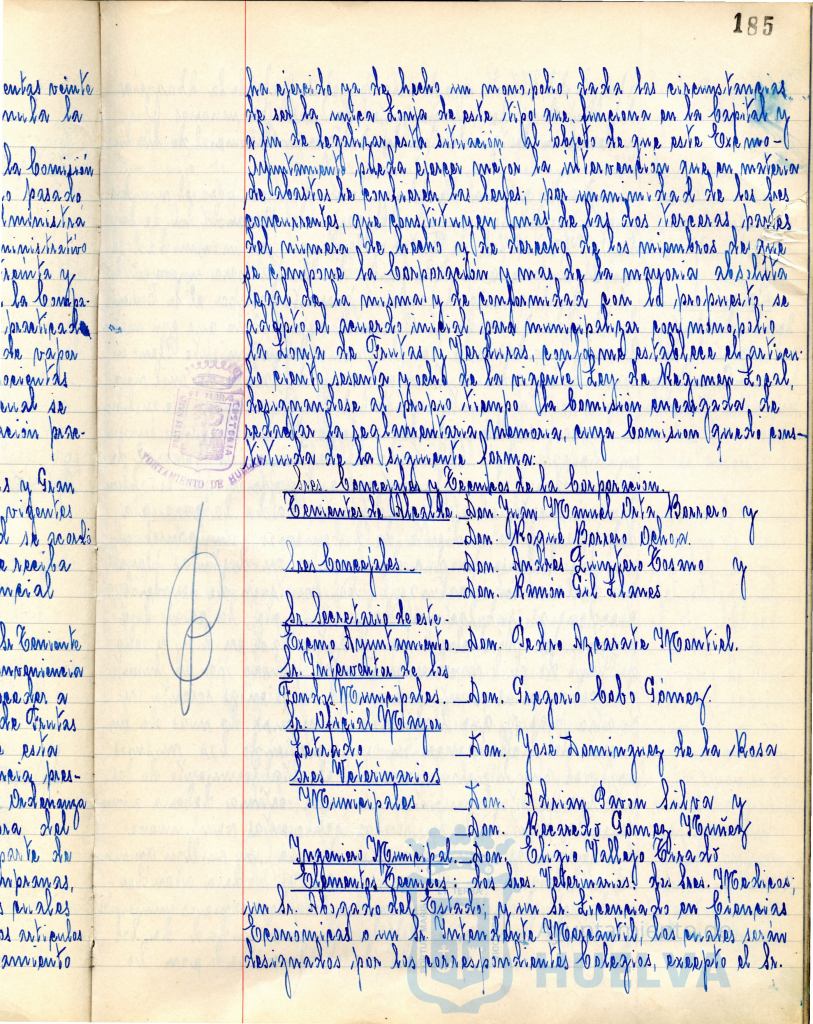 185
entas veinte
la Comisión
o pasado
ministra
ministrativo
treinta y
la Compa-
practicada
de vapor
ocientas
cual se
ción prac-
s y Gran
vigentes
se acordó
e reciba
ncial
Sr. Teniente
onveniencia
oceder a
de Frutas
e esta
ncia pres-
Ordenanza
ora del
parte de
mpranas,
s cuales
os articulos
amiento
ha ejercido ya de hecho un monopolio, dada las circunstancias
de ser la unica Lonja de este tipo que funciona en la Capital y
a fin de legalizar esta situación al objeto de que este Excmo-
Ayuntamiento pueda ejercer mejor la intervención que en materia
de abastos le confieren las leyes; por unanimidad de los Sres
concurrentes, que constituyen mas de las dos terceras partes
del número de hecho y de derecho de los miembros de que
se compone la Corporación y mas de la mayoria absoluta
legal de la misma y de conformidad con lo propuesto, se
adoptó el acuerdo inicial para municipalizar con monopolio
la Lonja de Frutas y Verduras, conforme establece el articu-
lo ciento sesenta y ocho de la vigente Ley de Regimen Local,
designandose al propio tiempo la Comisión encargada de
redactar la reglamentaria Memoria, cuya Comisión quedó cons-
tituida de la siguiente forma:
Sres Concejales y Tecnicos de la Corporación.
Tenientes de Alcalde _Don. Juan Manuel Orta Borrero y
_Don. Roque Borrero Ochoa.
Sres Concejales.- _Don. Andrés Quintero Tosano y
_Don. Ramón Gil Llanes
Sr. Secretario de este-
Excmo Ayuntamiento._Don. Pedro Azcarate Montiel.
Sr. Interventor de los
Fondos Municipales. _Don. Gregorio Cabo Gómez.
Sr. Oficial Mayor
Letrado _Don. José Dominguez de la Rosa
Sres Veterinarios
Municipales _Don. Adrian Pavon Silva y
_Don. Recaredo Gomez Muñoz
Ingeniero Municipal._Don. Eligio Vallejo Tirado
Elementos Tecnicos: dos Sres. Veterinarios: dos Sres. Medicos;
un Sr. Abogado del Estado, y un Sr. Licenciado en Ciencias
Económicas o un Sr. Intendente Mercantil, los cuales serán
designados, por los correspondientes Colegios, excepto el Sr.
HUELVA